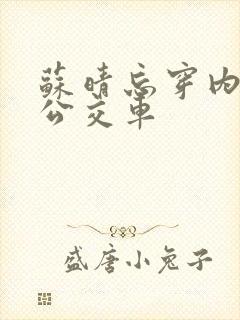 蘇晴忘穿内
公交車
盛唐小兔子